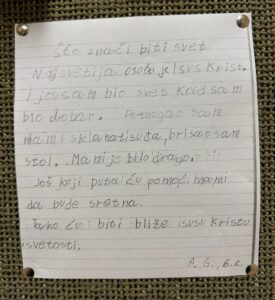 Što znači biti svet
Najsvetija osoba je Isus Krist.
I ja sam bio svet kad sam
bio dobar. Pomogao sam
mami sklanati suđa, brisao sam
stol. Mami je bilo drago.
Još koji puta ću pomoći mami
da bude sretna.
Tako ću biti bliže Isusu Kristu
svetosti.